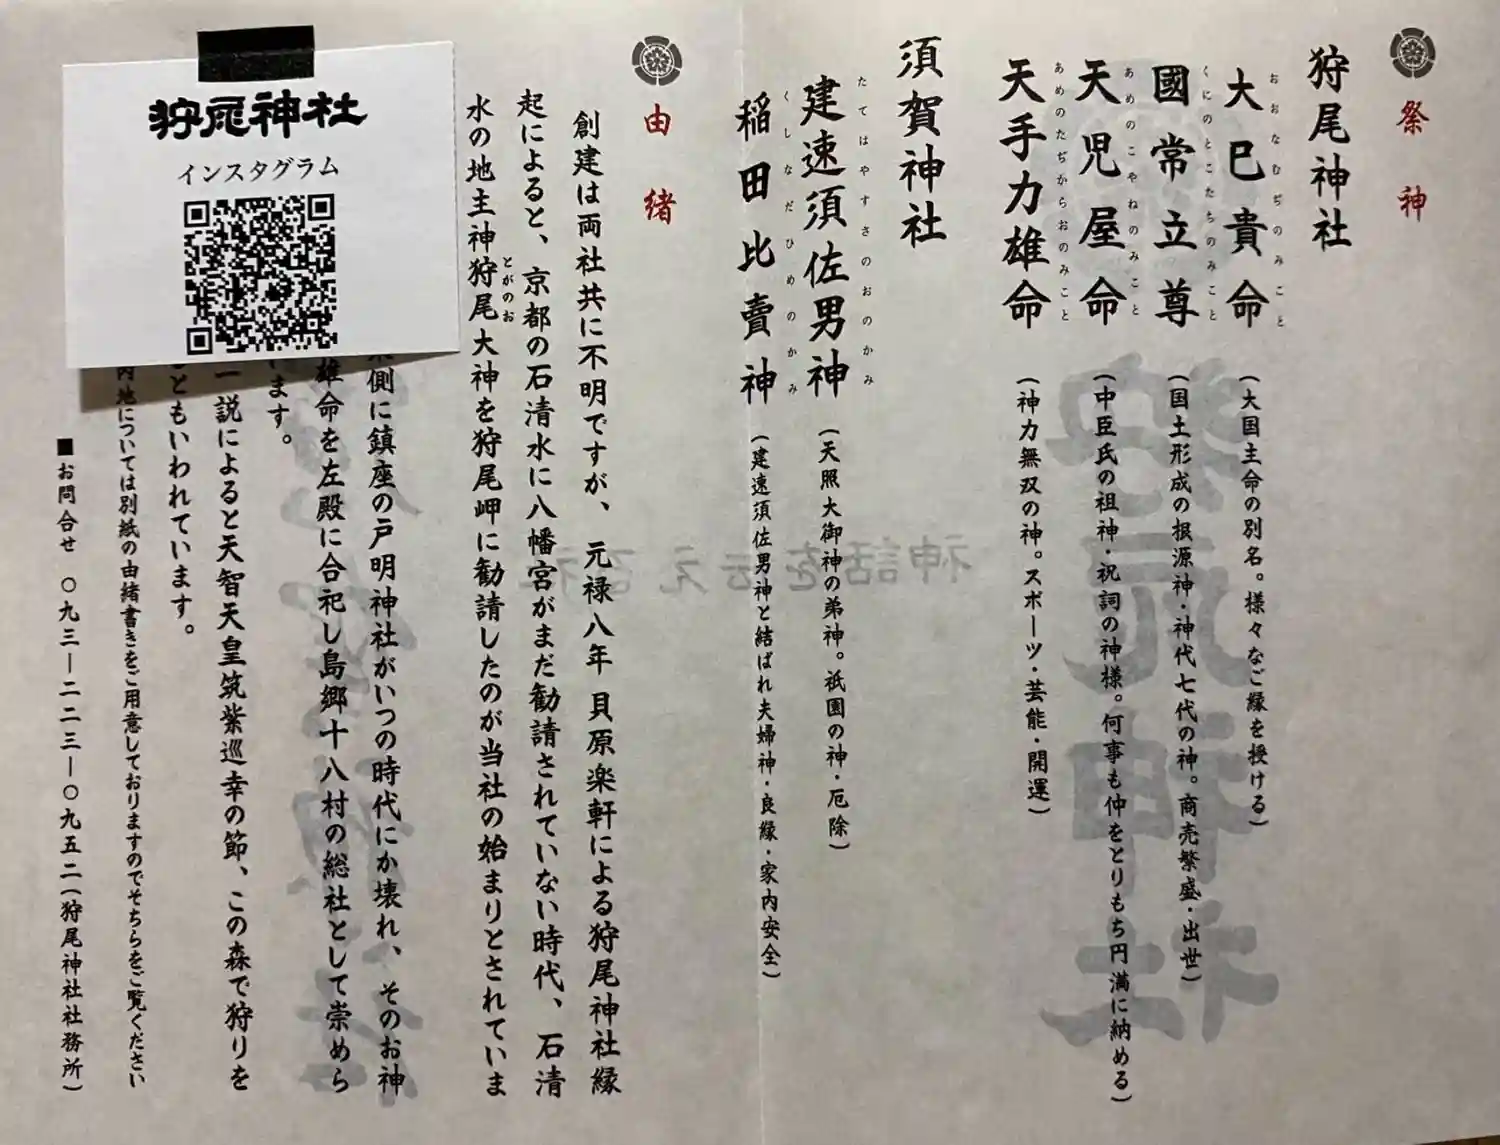 祭神
狩尾神社
大巳貴命
おおなむぢのみこと
(大国主命の別名。様々なご縁を授ける)
國常立尊
くにのとこたちのみこと
(国土形成の根源神・神代七代の神。商売繁盛・出世)
天児屋命
あめのこやねのみこと
(中臣氏の祖神・祝詞の神様。何事も仲をとりもち円満に納める)
天手力雄命
あめのたぢからおのみこと
(神力無双の神。スポーツ・芸能・開運)
須賀神社
建速須佐男神
たてはやすさのおのかみ
(天照大御神の弟神。祇園の神・厄除)
稲田比賣神
くしなだひめのかみ
(建速須佐男神と結ばれ夫婦神・良縁・家内安全)
由緒
創建は両社共に不明ですが、元禄八年 貝原楽軒による狩尾神社縁
起によると、京都の石清水に八幡宮がまだ勧請されていない時代、石清
水の地主神狩尾大神を狩尾岬に勧請したのが当社の始まりとされていま
とがのお
側に鎮座の戸明神社がいつの時代にか壊れ、そのお神
雄命を左殿に合祀し島郷十八村の総社として崇めら
います。
一説によると天智天皇筑紫巡幸の節、この森で狩りを
ともいわれています。
内地については別紙の由緒書きをご用意しておりますのでそちらをご覧ください
■お問合せ 〇九三―二二三―〇九五二(狩尾神社社務所)
狩尾神社
インスタグラム